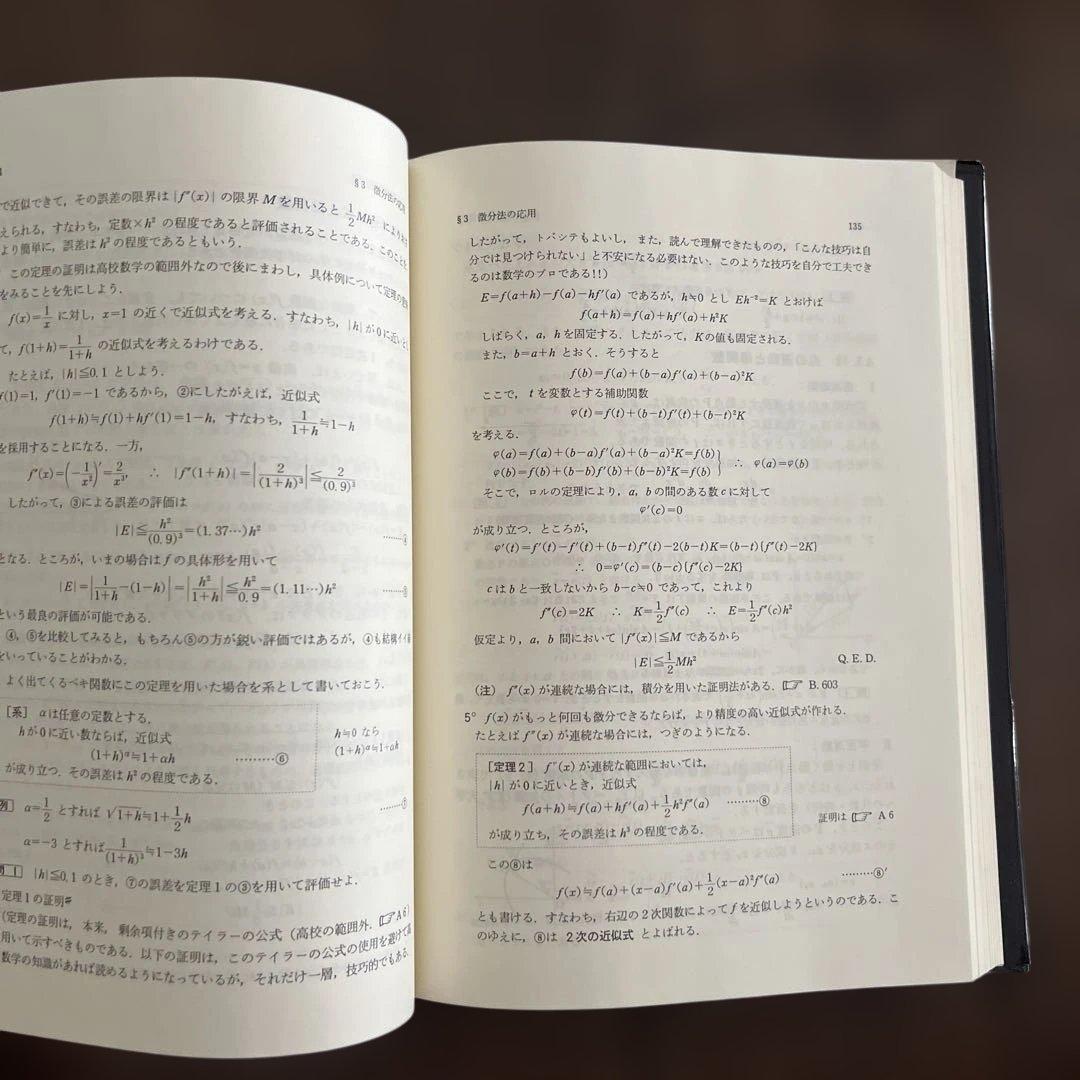 §3 微分法の応用
で近似できて,その誤差の限界は |f″(x)| の限界 M を用いると 1/2 Mh² により
えられる.すなわち,定数×h² の程度であると評価されることである.このことを
より簡単に,誤差は h² の程度であるともいう.
この定理の証明は高校数学の範囲外なので後にまわし,具体例について定理の
をみることを先にしよう.
f(x)=1/x に対し,x=1 の近くで近似式を考える.すなわち,|h| が0に近い
て,f(1+h)=1/(1+h) の近似式を考えるわけである.
たとえば,|h|≦0.1 としよう.
f(1)=1, f′(1)=-1 であるから,②にしたがえば,近似式
f(1+h)≒f(1)+hf′(1)=1-h, すなわち, 1/(1+h)≒1-h
を採用することになる.一方,
f″(x)=(-1/x²)′=2/x³, ∴ |f″(1+h)|=|2/(1+h)³|≦2/(0.9)³
したがって,③による誤差の評価は
|E|≦h²/(0.9)³=(1.37…)h² ………④
となる.ところが,いまの場合は f の具体形を用いて
|E|=|1/(1+h)-(1-h)|=|h²/(1+h)|≦h²/0.9=(1.11…)h² ………⑤
という最良の評価が可能である.
④,⑤を比較してみると,もちろん⑤の方が鋭い評価ではあるが,④も結構イイ
をいっていることがわかる.
よく出てくるベキ関数にこの定理を用いた場合を系として書いておこう.
[系] α は任意の定数とする.
h が0に近い数ならば,近似式
(1+h)^α≒1+αh ………⑥
が成り立つ.その誤差は h² の程度である.
h≒0 なら
(1+h)^α≒1+αh
例 α=1/2 とすれば √(1+h)≒1+1/2 h ………⑦
α=-3 とすれば 1/(1+h)³≒1-3h
問1 |h|≦0.1 のとき,⑦の誤差を定理1の③を用いて評価せよ.
定理1の証明
(定理の証明は,本来,剰余項付きのテイラーの公式(高校の範囲外.☞A6)
用いて示すべきものである.以下の証明は,このテイラーの公式の使用を避けて
数学の知識があれば読めるようになっているが,それだけ一層,技巧的でもある.
§3 微分法の応用 135
したがって,トバシテもよいし,また,読んで理解できたものの,「こんな技巧は自
分では見つけられない」と不安になる必要はない.このような技巧を自分で工夫でき
るのは数学のプロである!!)
E=f(a+h)-f(a)-hf′(a) であるが,h≒0 とし Eh⁻²=K とおけば
f(a+h)=f(a)+hf′(a)+h²K
しばらく,a, h を固定する.したがって,K の値も固定される.
また,b=a+h とおく.そうすると
f(b)=f(a)+(b-a)f′(a)+(b-a)²K
ここで,t を変数とする補助関数
φ(t)=f(t)+(b-t)f′(t)+(b-t)²K
を考える.
φ(a)=f(a)+(b-a)f′(a)+(b-a)²K=f(b)
φ(b)=f(b)+(b-b)f′(b)+(b-b)²K=f(b)} ∴ φ(a)=φ(b)
そこで,ロルの定理により,a, b の間のある数 c に対して
φ′(c)=0
が成り立つ.ところが,
φ′(t)=f′(t)-f′(t)+(b-t)f″(t)-2(b-t)K=(b-t){f″(t)-2K}
∴ 0=φ′(c)=(b-c){f″(c)-2K}
c は b と一致しないから b-c≒0 であって,これより
f″(c)=2K ∴ K=1/2 f″(c) ∴ E=1/2 f″(c)h²
仮定より,a, b 間において |f″(x)|≦M であるから
|E|≦1/2 Mh² Q. E. D.
(注) f″(x) が連続な場合には,積分を用いた証明法がある.☞ B. 603
5° f(x) がもっと何回も微分できるならば,より精度の高い近似式が作れる.
たとえば f‴(x) が連続な場合には,つぎのようになる.
[定理2] f‴(x) が連続な範囲においては,
|h| が0に近いとき,近似式
f(a+h)≒f(a)+hf′(a)+1/2 h²f″(a) ………⑧
が成り立ち,その誤差は h³ の程度である.
証明は ☞ A6
この⑧は
f(x)≒f(a)+(x-a)f′(a)+1/2 (x-a)²f″(a) ………⑧′
とも書ける.すなわち,右辺の2次関数によって f を近似しようというのである.こ
のゆえに,⑧は 2次の近似式 とよばれる.